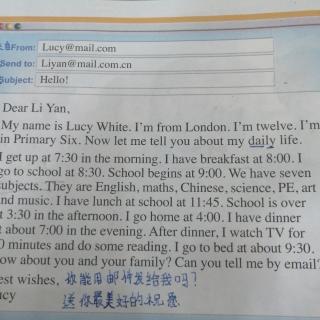 From: Lucy@mail.com
Send to: Liyan@mail.com.cn
Subject: Hello!
Dear Li Yan,
My name is Lucy White. I'm from London. I'm twelve. I'm
in Primary Six. Now let me tell you about my daily life.
I get up at 7:30 in the morning. I have breakfast at 8:00. I
go to school at 8:30. School begins at 9:00. We have seven
subjects. They are English, maths, Chinese, science, PE, art
and music. I have lunch at school at 11:45. School is over
at 3:30 in the afternoon. I go home at 4:00. I have dinner
at about 7:00 in the evening. After dinner, I watch TV for
0 minutes and do some reading. I go to bed at about 9:30.
How about you and your family? Can you tell me by email?
est wishes, 你能用邮件发给我吗?
ucy 送你最美好的祝愿